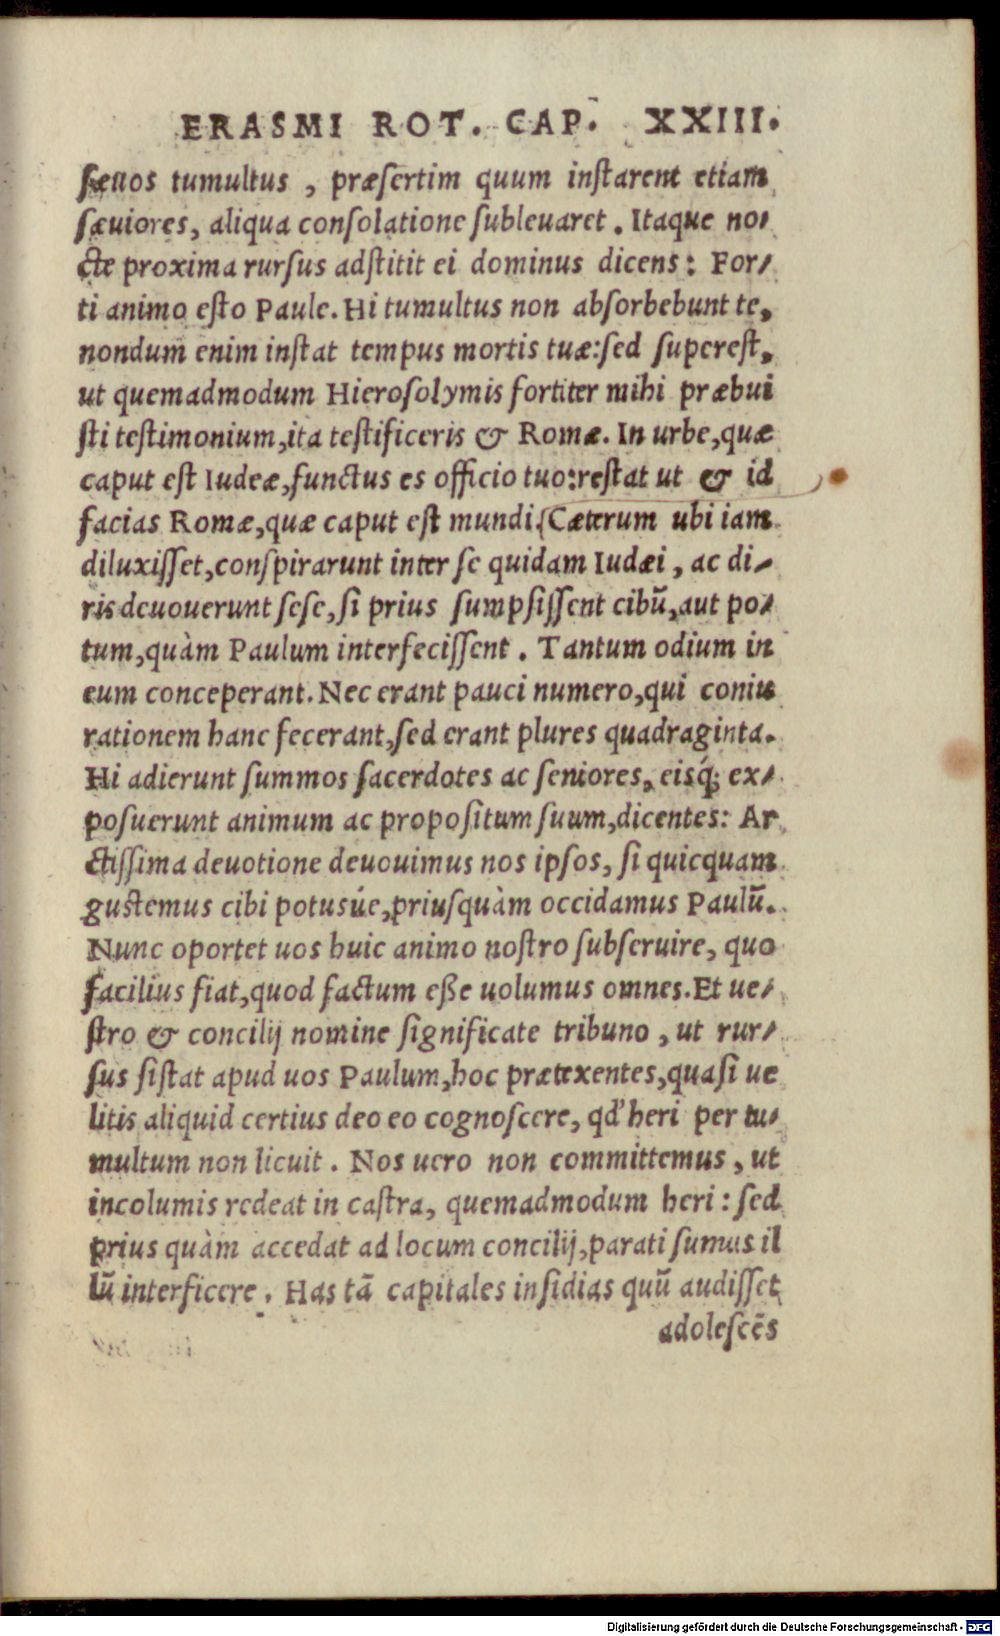 ERASMI ROT. CAP. XXIII.
sæuos tumultus , præsertim quum instarent etiam
sæuiores, aliqua consolatione subleuaret . Itaque no-
cte proxima rursus adstitit ei dominus dicens: For-
ti animo esto Paule. Hi tumultus non absorbebunt te,
nondum enim instat tempus mortis tuæ:sed superest,
ut quemadmodum Hierosolymis fortiter mihi præbui
sti testimonium,ita testificeris & Romæ. In urbe,quæ
caput est Iudeæ,functus es officio tuo:restat ut & id
facias Romæ,quæ caput est mundi.(Cæterum ubi iam
diluxisset,conspirarunt inter se quidam Iudæi , ac di-
ris deuouerunt sese, si prius sumpsissent cibū,aut po-
tum,quàm Paulum interfecissent . Tantum odium in
eum conceperant. Nec erant pauci numero,qui coniu
rationem hanc fecerant,sed erant plures quadraginta.
Hi adierunt summos sacerdotes ac seniores, eisq́; ex-
posuerunt animum ac propositum suum,dicentes: Ar
ctissima deuotione deuouimus nos ipsos, si quicquam
gustemus cibi potusúe,priusquàm occidamus Paulū.
Nunc oportet uos huic animo nostro subseruire, quo
facilius fiat,quod factum eße uolumus omnes. Et ue-
stro & concilij nomine significate tribuno , ut rur-
sus sistat apud uos Paulum,hoc prætexentes,quasi ue
litis aliquid certius deo eo cognoscere, qd' heri per tu-
multum non licuit . Nos uero non committemus , ut
incolumis redeat in castra, quemadmodum heri : sed
prius quàm accedat ad locum concilij,parati sumus il
lū interficere . Has tā capitales insidias quū audisset
adolescēs
Digitalisierung gefördert durch die Deutsche Forschungsgemeinschaft - DFG